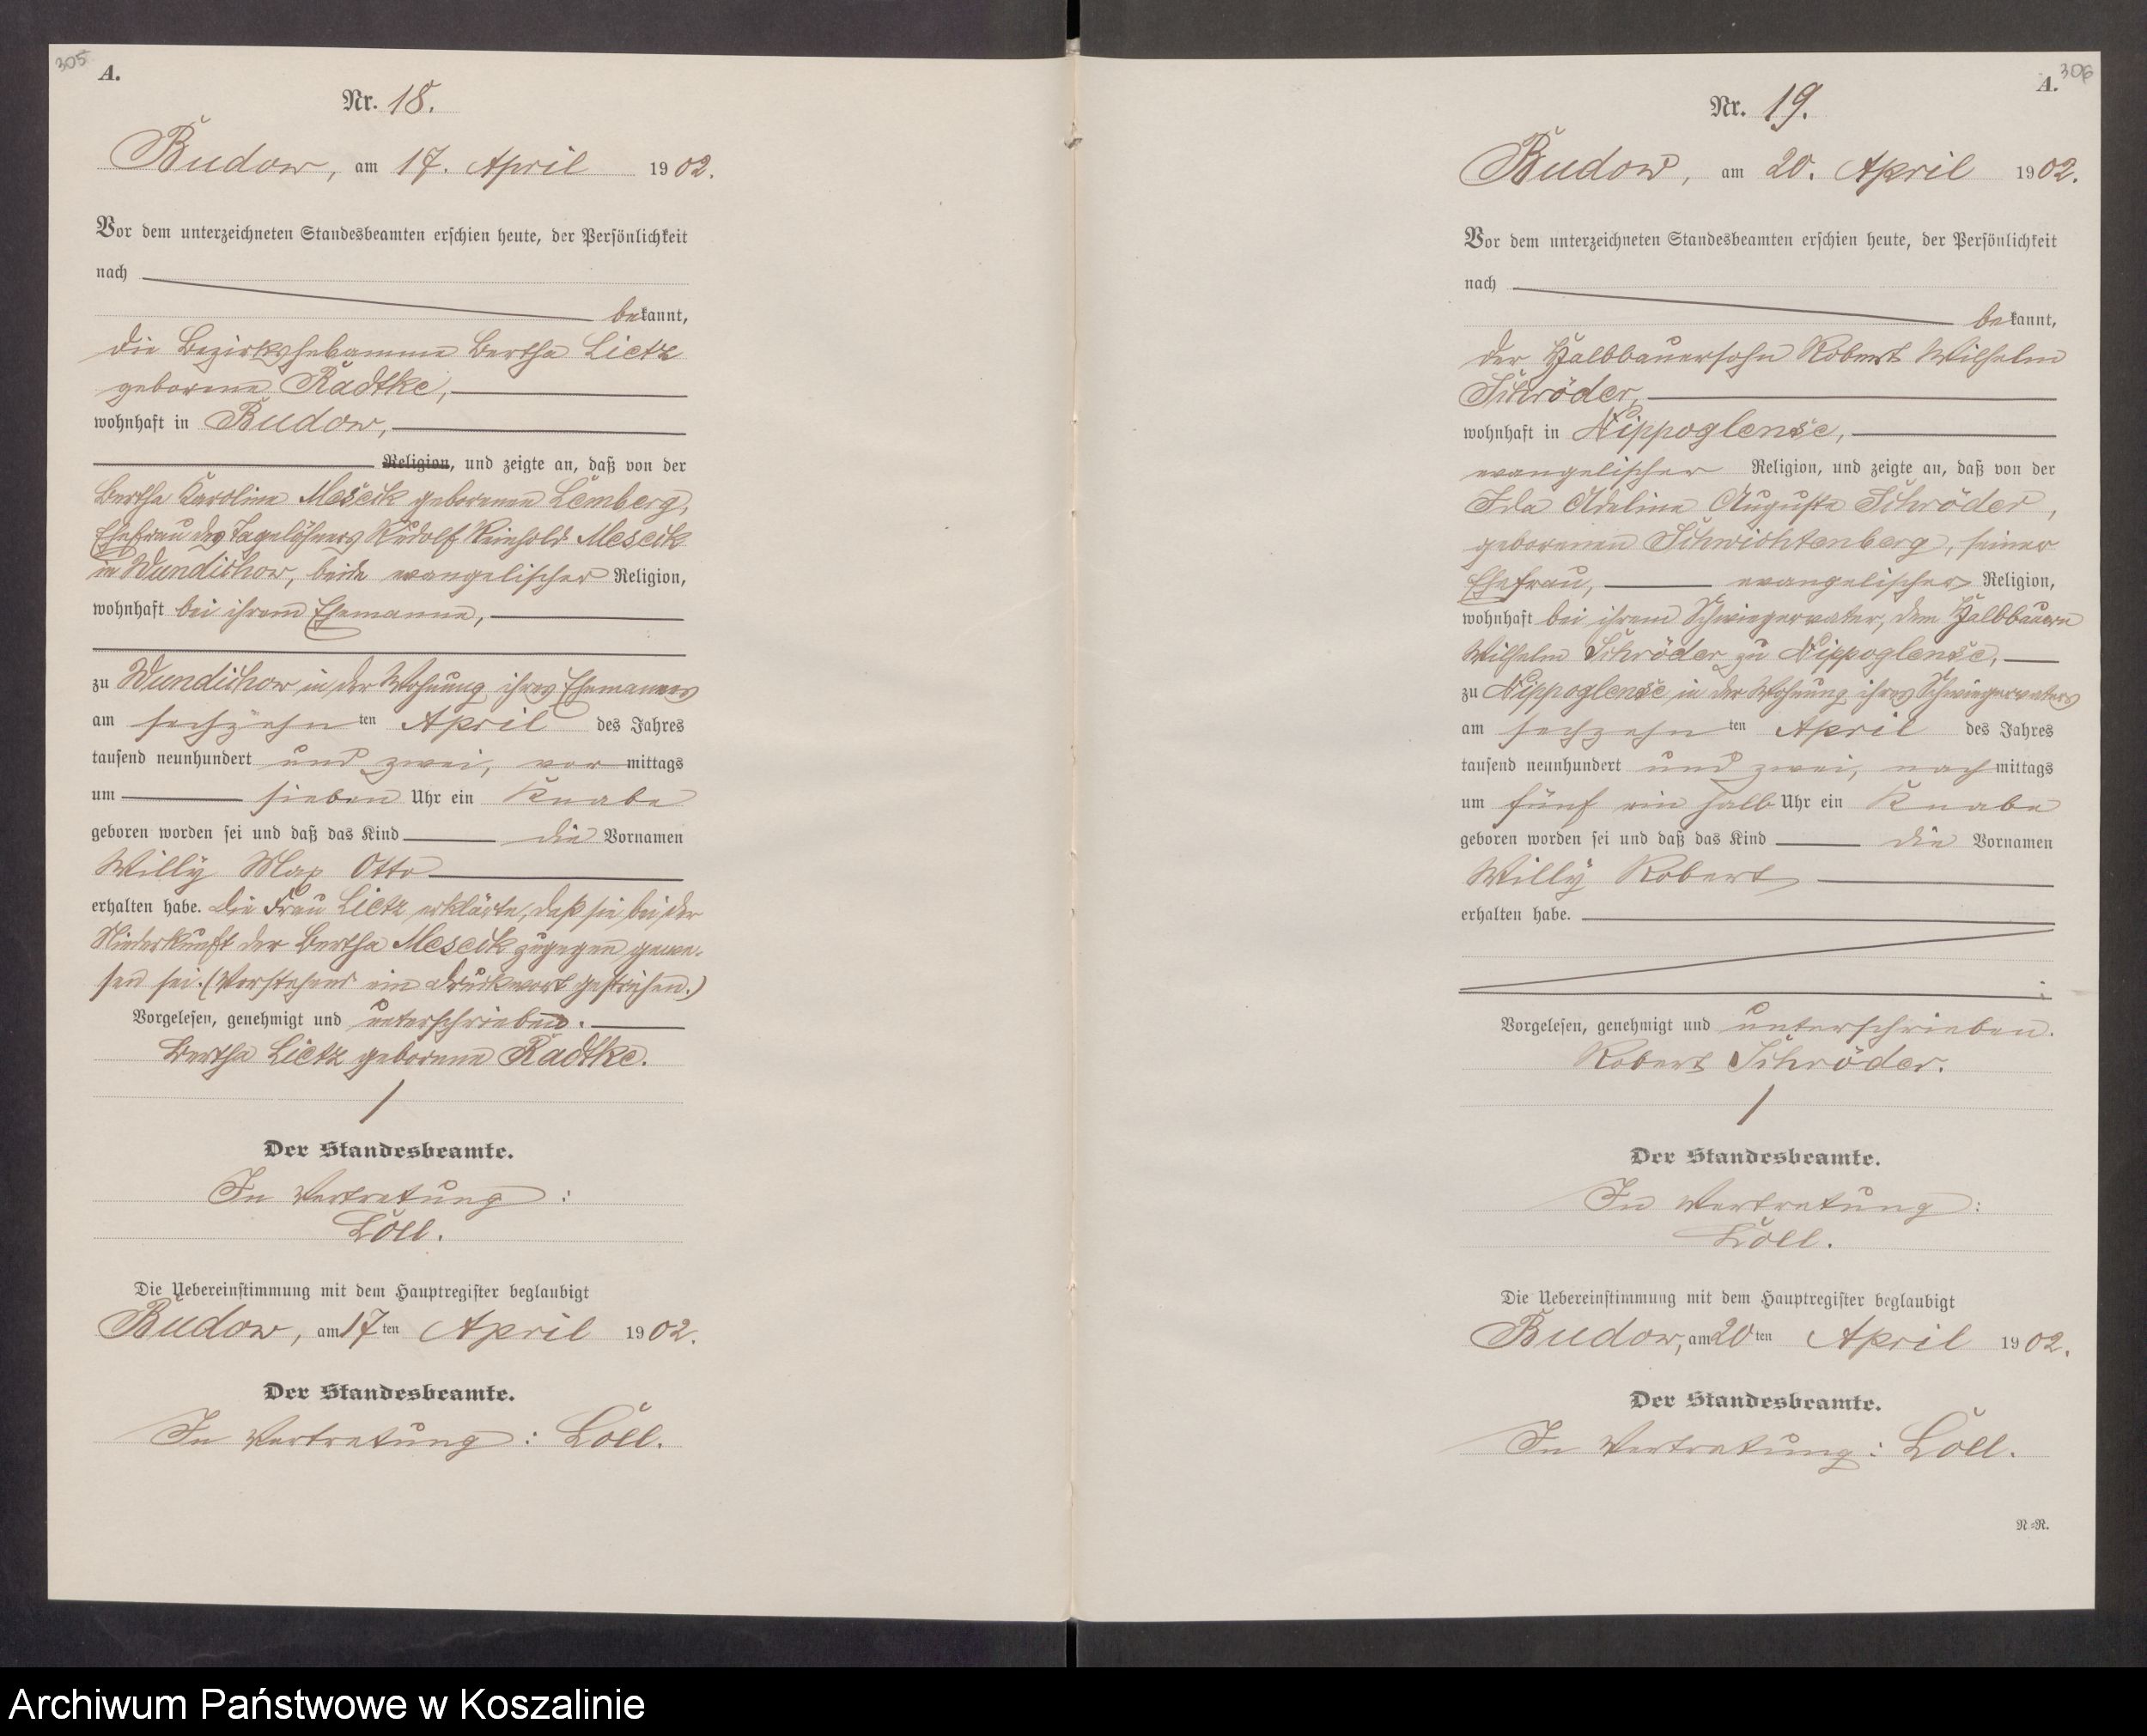 305
A.
Nr. 18.
Budow, am 17. April 1902.
Vor dem unterzeichneten Standesbeamten erschien heute, der Persönlichkeit
nach
bekannt,
die Bezirkshebamme Bertha Lietz
geborene Radtke,
wohnhaft in Budow,
Religion, und zeigte an, daß von der
Bertha Karoline Mescik geborenen Lemberg,
Ehefrau des Tagelöhners Rudolf Reinhold Mescik
in Wundichow, beide evangelischer Religion,
wohnhaft bei ihrem Ehemanne,
zu Wundichow in der Wohnung ihres Ehemannes
am sechzehn ten April des Jahres
tausend neunhundert und zwei, vor mittags
um sieben Uhr ein Knabe
geboren worden sei und daß das Kind die Vornamen
Willy Max Otto
erhalten habe. Die Frau Lietz erklärte, daß sie bei der
Niederkunft der Bertha Mescik zugegen gewe-
sen sei. (Vorstehend ein Druckwort gestrichen.)
Vorgelesen, genehmigt und unterschrieben.
Bertha Lietz geborene Radtke.
Der Standesbeamte.
In Vertretung:
Löll.
Die Uebereinstimmung mit dem Hauptregister beglaubigt
Budow, am 17ten April 1902.
Der Standesbeamte.
In Vertretung: Löll.
306
A.
Nr. 19.
Budow, am 20. April 1902.
Vor dem unterzeichneten Standesbeamten erschien heute, der Persönlichkeit
nach
bekannt,
der Halbbauersohn Robert Wilhelm
Schröder,
wohnhaft in Nippoglense,
evangelischer Religion, und zeigte an, daß von der
Ida Adeline Auguste Schröder,
geborenen Schwichtenberg, seiner
Ehefrau, evangelischer Religion,
wohnhaft bei ihrem Schwiegervater, dem Halbbauern
Wilhelm Schröder zu Nippoglense,
zu Nippoglense in der Wohnung ihres Schwiegervaters
am sechzehn ten April des Jahres
tausend neunhundert und zwei, nach mittags
um fünf ein halb Uhr ein Knabe
geboren worden sei und daß das Kind die Vornamen
Willy Robert
erhalten habe.
Vorgelesen, genehmigt und unterschrieben.
Robert Schröder.
Der Standesbeamte.
In Vertretung:
Löll.
Die Uebereinstimmung mit dem Hauptregister beglaubigt
Budow, am 20ten April 1902.
Der Standesbeamte.
In Vertretung: Löll.
N=R.
Archiwum Państwowe w Koszalinie